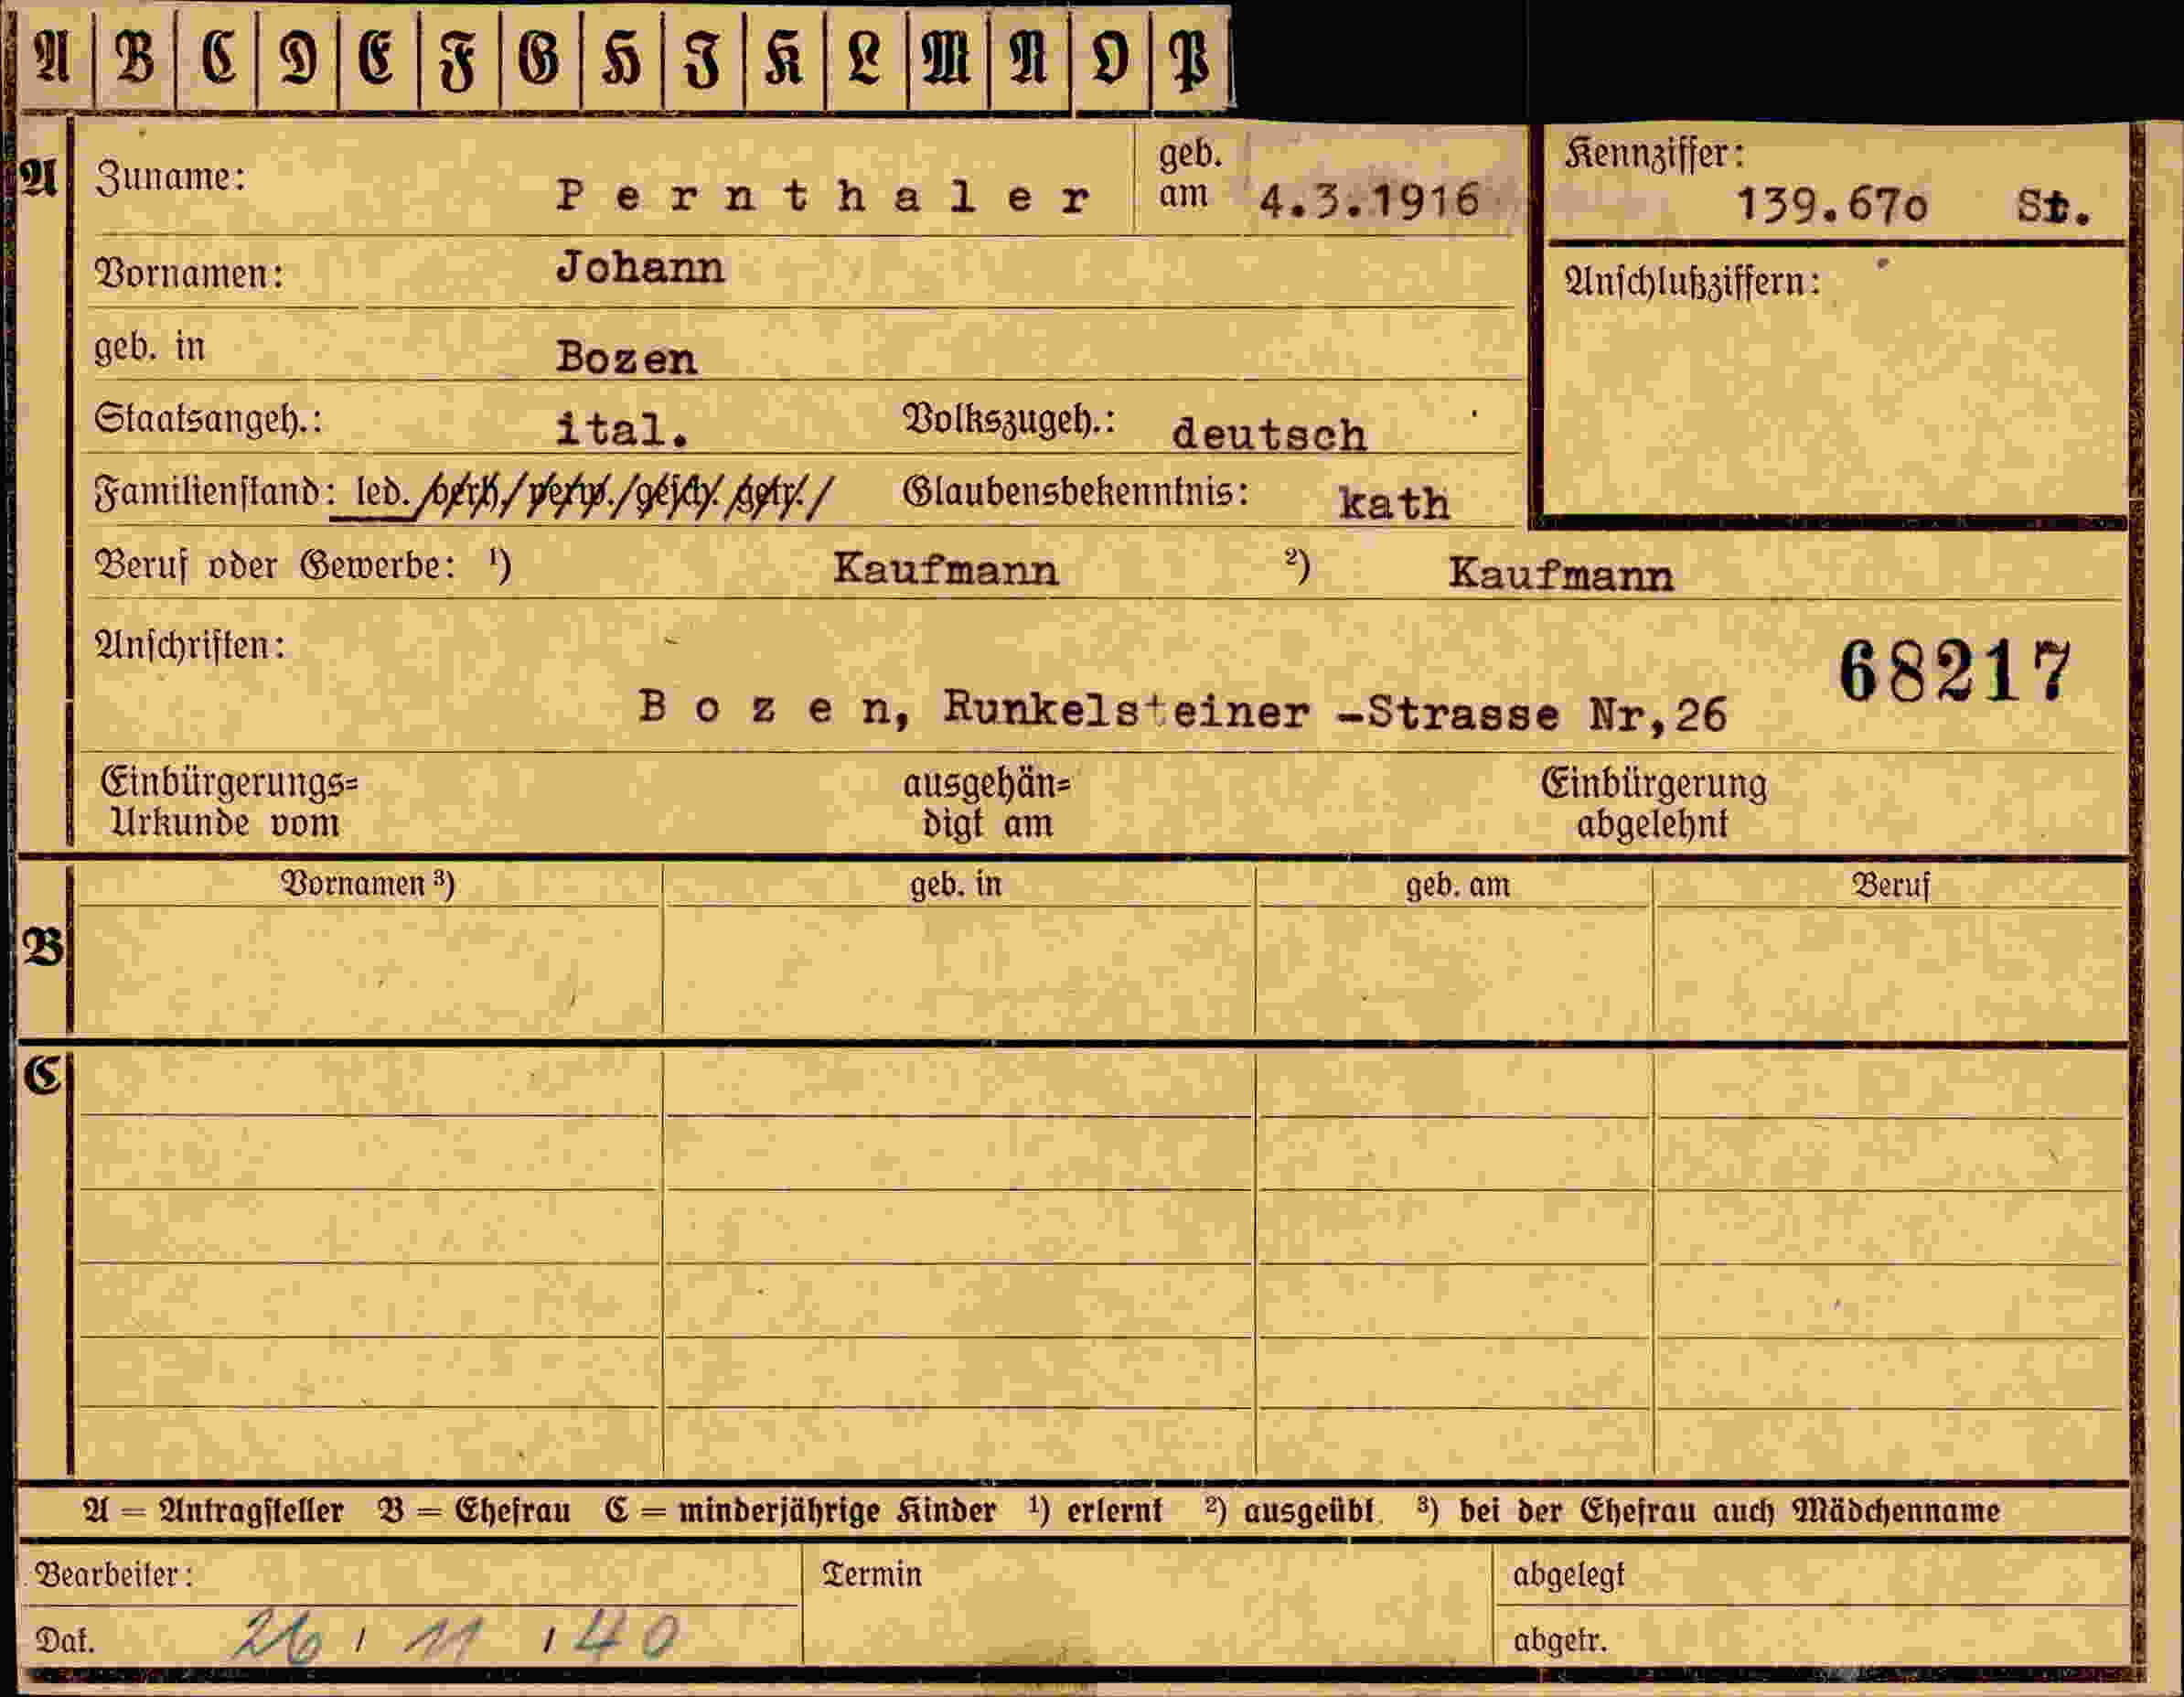 A B C D E F G H J K L M N O P
A Zuname: Pernthaler geb. am 4.3.1916 Kennziffer: 139.67o St.
Vornamen: Johann Anschlußziffern:
geb. in Bozen
Staatsangeh.: ital. Volkszugeh.: deutsch
Familienstand: led./verh./verw./gesch./getr./ Glaubensbekenntnis: kath
Beruf oder Gewerbe: 1) Kaufmann 2) Kaufmann
Anschriften: 68217
Bozen, Runkelsteiner -Strasse Nr,26
Einbürgerungs= ausgehän= Einbürgerung
Urkunde vom digt am abgelehnt
Vornamen 3) geb. in geb. am Beruf
B
C
A = Antragsteller B = Ehefrau C = minderjährige Kinder 1) erlernt 2) ausgeübt. 3) bei der Ehefrau auch Mädchenname
Bearbeiter: Termin abgelegt
Dat. 26/11/40 abgetr.